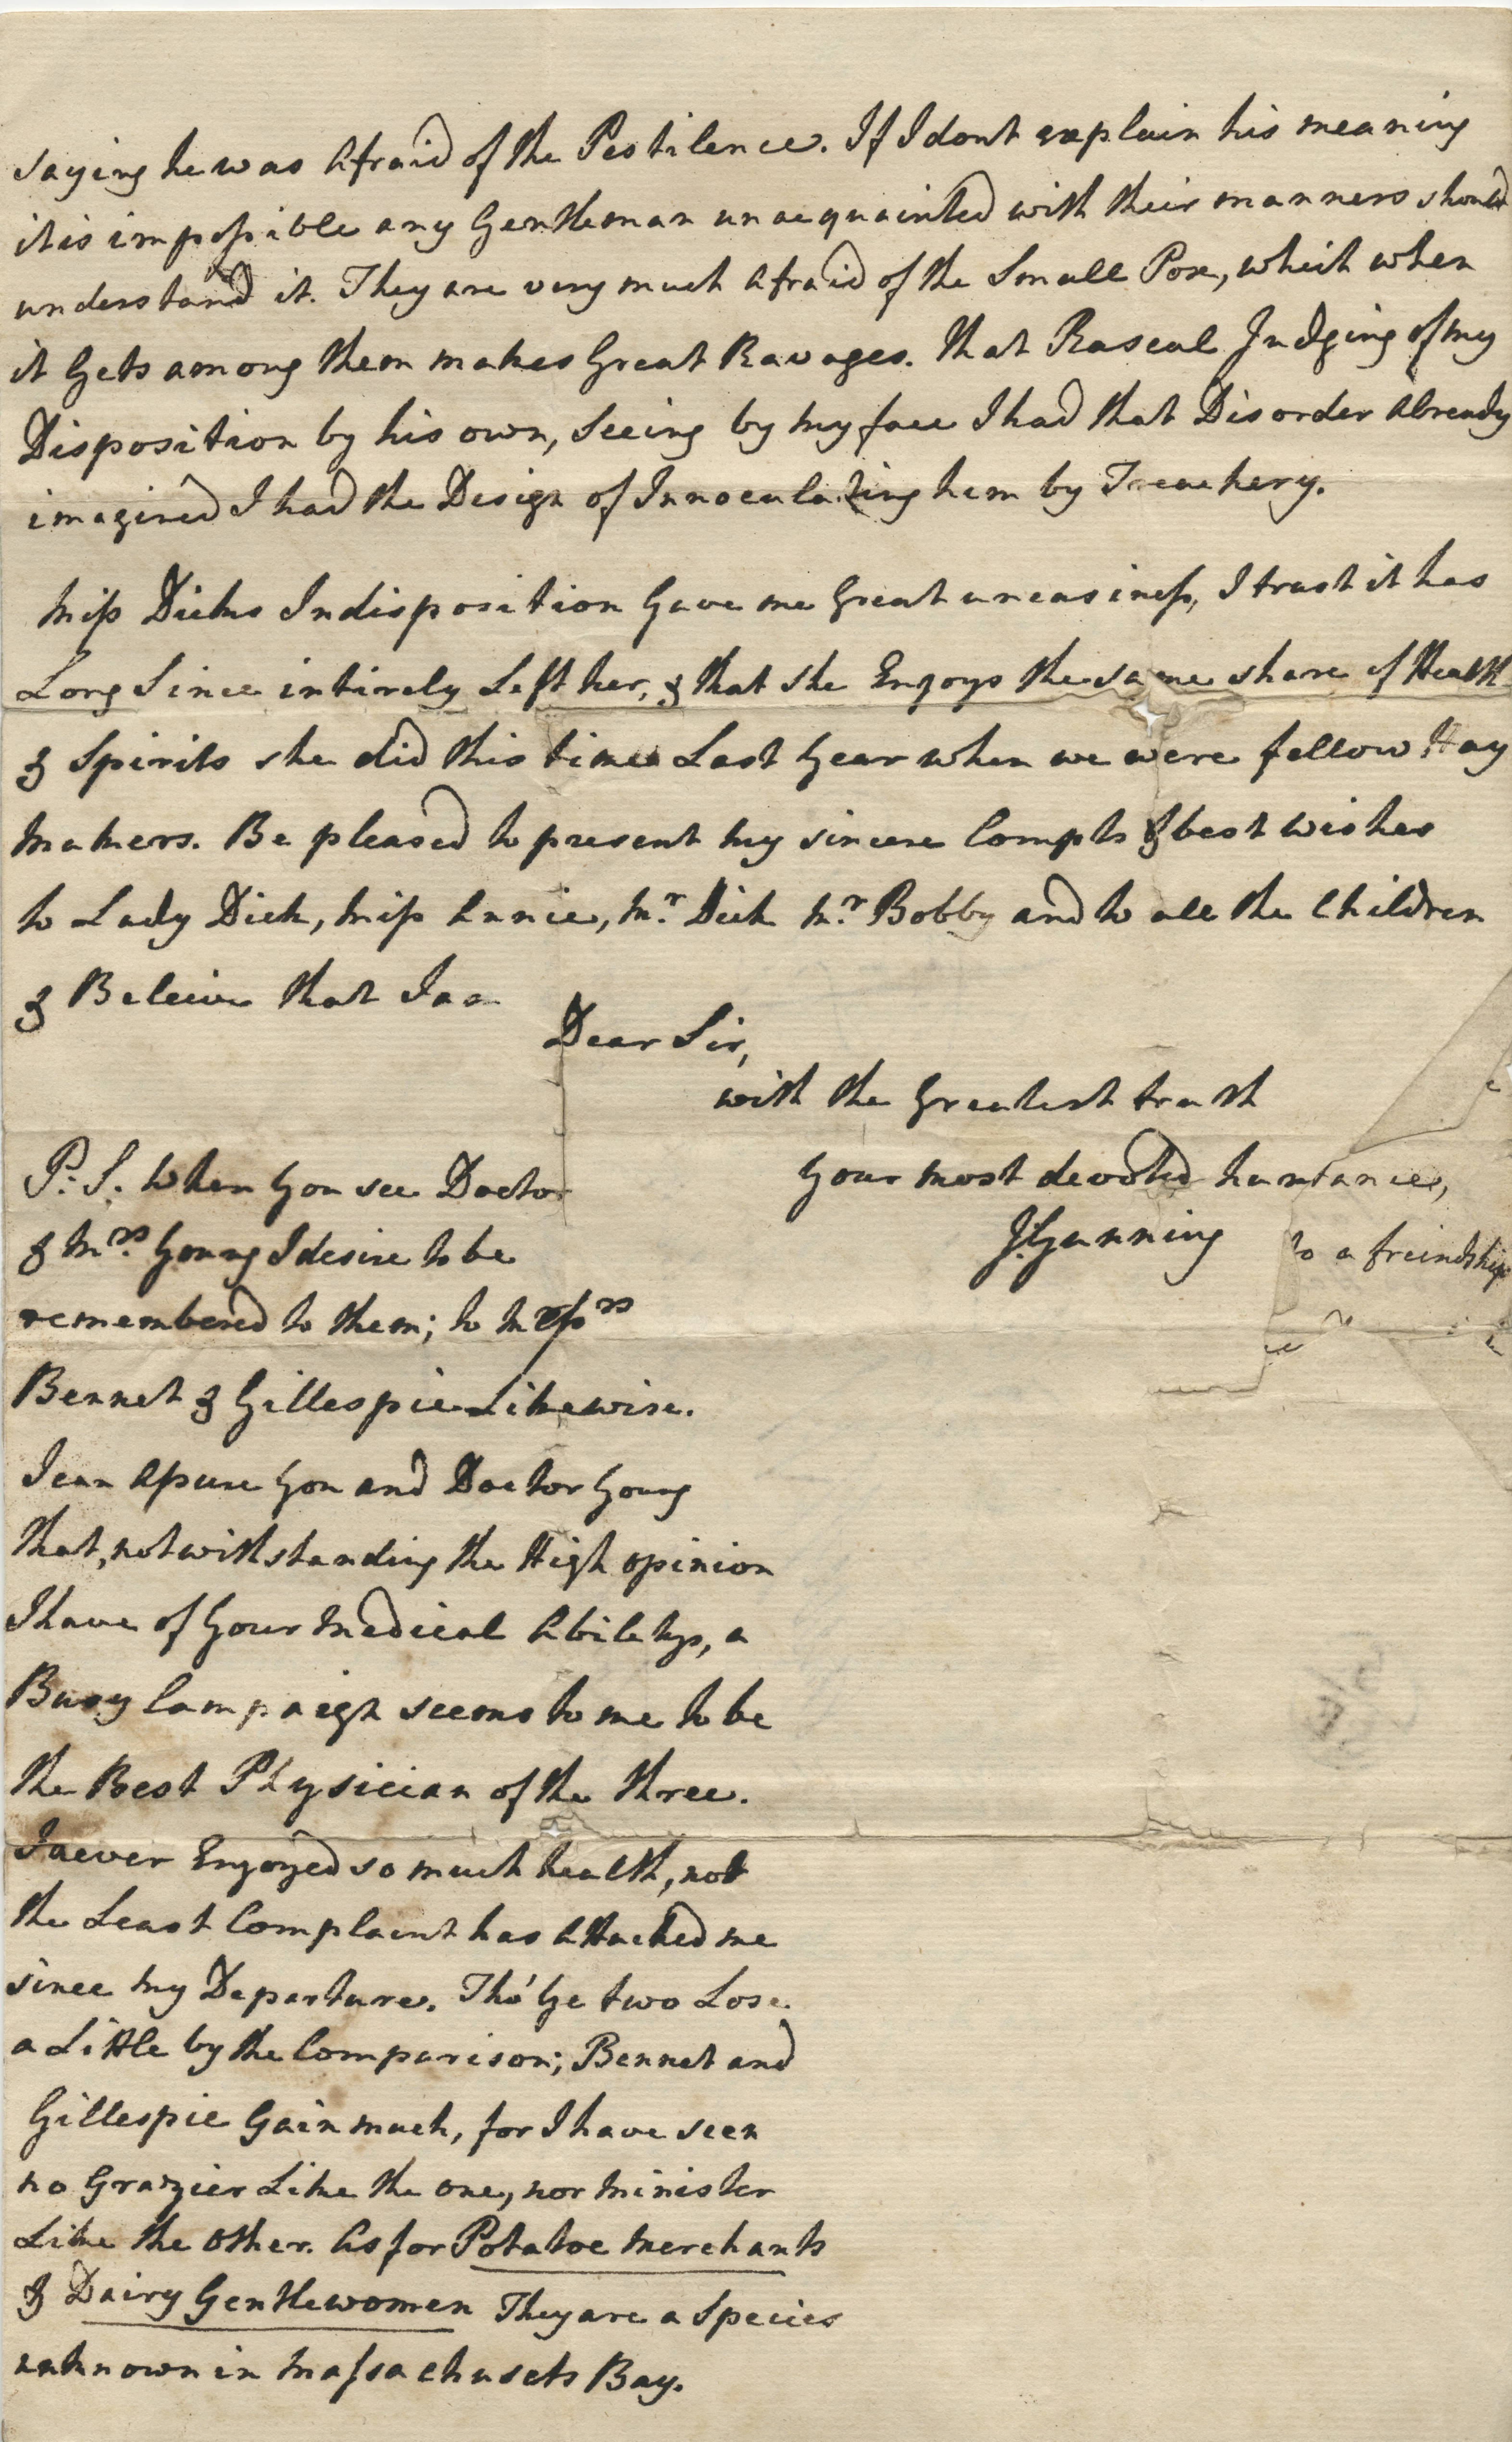 saying he was Afraid of the Pestilence. If I dont explain his meaning
it is impossible any Gentleman unacquainted with their manners should
understand it. They are very much Afraid of the Small Pox, which when
it Gets among them makes Great Ravages. That Rascal Judging of my
Disposition by his own, Seeing by my face I had that Disorder Already
imagined I had the Design of Innoculating him by Treachery.
Miss Dicks Indisposition Gave me Great uneasiness, I trust it has
Long Since intirely Left her, & that she Enjoys the same share of Health
& Spirits she did this time Last Year when we were fellow Hay
Makers. Be pleased to present my sincere Compts & best wishes
to Lady Dick, Miss Annie, Mr. Dick Mr. Bobby and to all the Children
& Beleive that I am
Dear Sir,
with the Greatest truth
Your most devoted
J: Gunning
to a freindship
P: S: When You see Doctor
& Mrs. Young I desire to be
remembered to them; to Messrs
Bennet & Gillespie Likewise.
I can Assure You and Doctor Young
that, notwithstanding the High opinion
I have of Your Medical Abilitys, a
Busy Campaign seems to me to be
the Best Physician of the three.
I never Enjoyed so much health, not
the Least Complaint has Attacked me
since my Departure. Tho' Ye two Lose
a Little by the Comparison; Bennet and
Gillespie Gain much, for I have seen
no Grazier Like the one, nor Minister
Like the Other. As for Potatoe Merchants
& Dairy Gentlewomen They are a Species
unknown in Massachusets Bay.